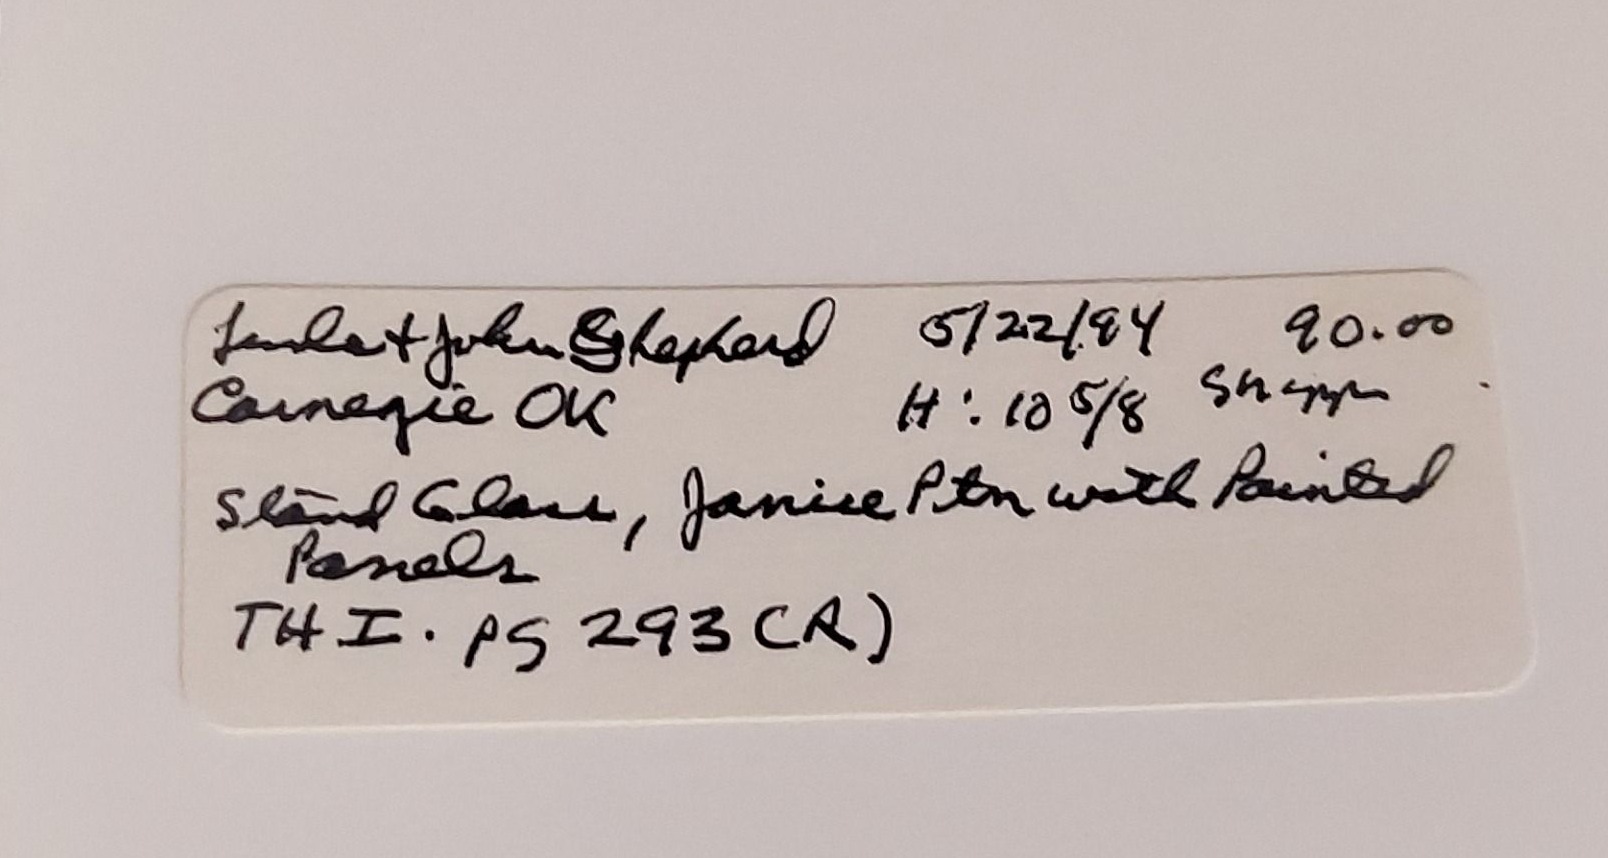 Linda + John Shepherd 5/22/94 90.00
Carnegie OK H: 10 5/8
Stand Glass, Janice Ptn with Painted
Panels
TH I. pg 293 (A)